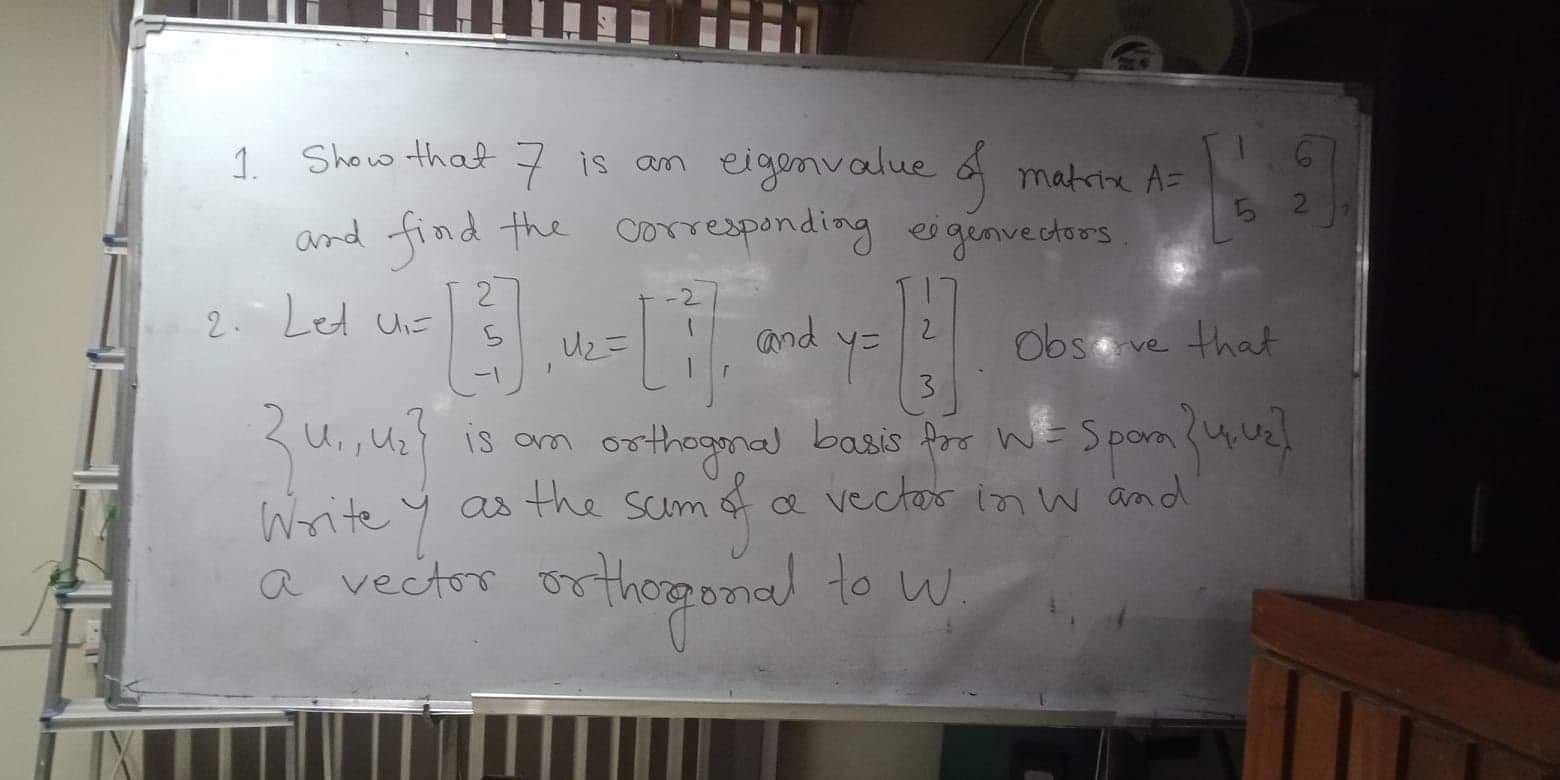 1. Show that 7 is an eigenvalue of matrix A= [1 6; 5 2],
and find the corresponding eigenvectors.
2. Let u₁= [2; 5; -1], u₂= [-2; 1; 1], and y= [1; 2; 3]. Observe that
{u₁, u₂} is an orthogonal basis for W = Span {u₁, u₂}
Write y as the sum of a vector in W and
a vector orthorgonal to W.